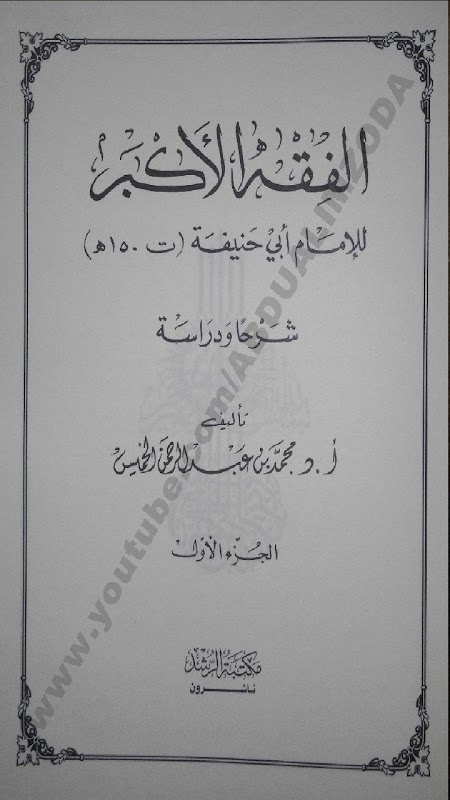 الفِقْهُ الأَكْبَر
للإمَام أبي حَنيفَة (ت ١٥٠هـ)
شَرْحًا وَدرَاسَة
تأليف
أ . د محمَّد بن عَبْد الرحمن الخميس
الجُزء الأوّل
مكتبَة الرُّشد
ناشرون
www.youtube.com/ABDUALIMZODA